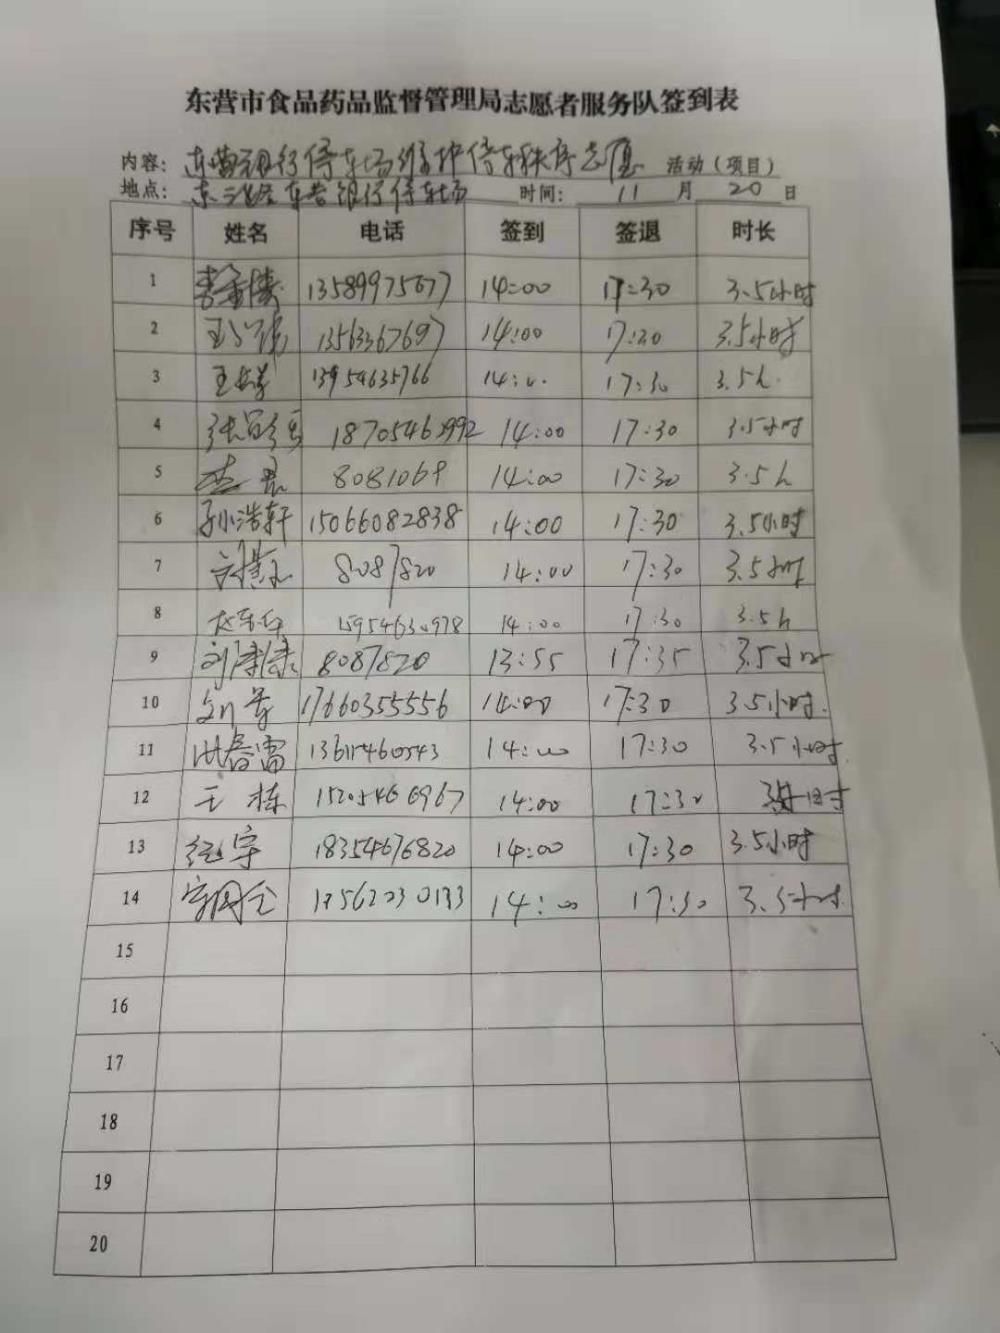 东营市食品药品监督管理局志愿者服务队签到表
内容：东营银行停车场维护停车秩序志愿 活动（项目）
地点：东二路东营银行停车场 时间：11月20日
序号 姓名 电话 签到 签退 时长
1 13589975677 14:00 17:30 3.5小时
2 13563367697 14:00 17:30 3.5小时
3 13954635766 14: 17:30 3.5h.
4 14:00 17:30 3.5小时
5 8081069 14:00 17:30 3.5h
6 孙浩轩 15066082838 14:00 17:30 3.5小时
7 8087820 14:00 17:30 3.5小时
8 15954630978 14:00 17:30 3.5h
9 刘潇潇 8087820 13:55 17:35 3.5小时
10 17660355556 14:00 17:30 3.5小时.
11 洪春雷 14:00 17:30 3.5小时.
12 王栋 15205466967 14:00 17:30
13 纪宇 18354676820 14:00 17:30 3.5小时
14 14:00 17:30 3.5小时.
15
16
17
18
19
20